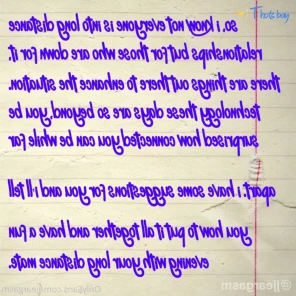 so, i know not everyone is into long distance
relationships but for those who are down for it,
there are things out there to enhance the situation.
technology these days are so beyond, you be
surprised how connected you can be while far
apart. i have some suggestions for you and i'll tell
you how to put it all together and have a fun
evening with your long distance mate.
@jjeargasm
Onlyfans.com/jjeargasm